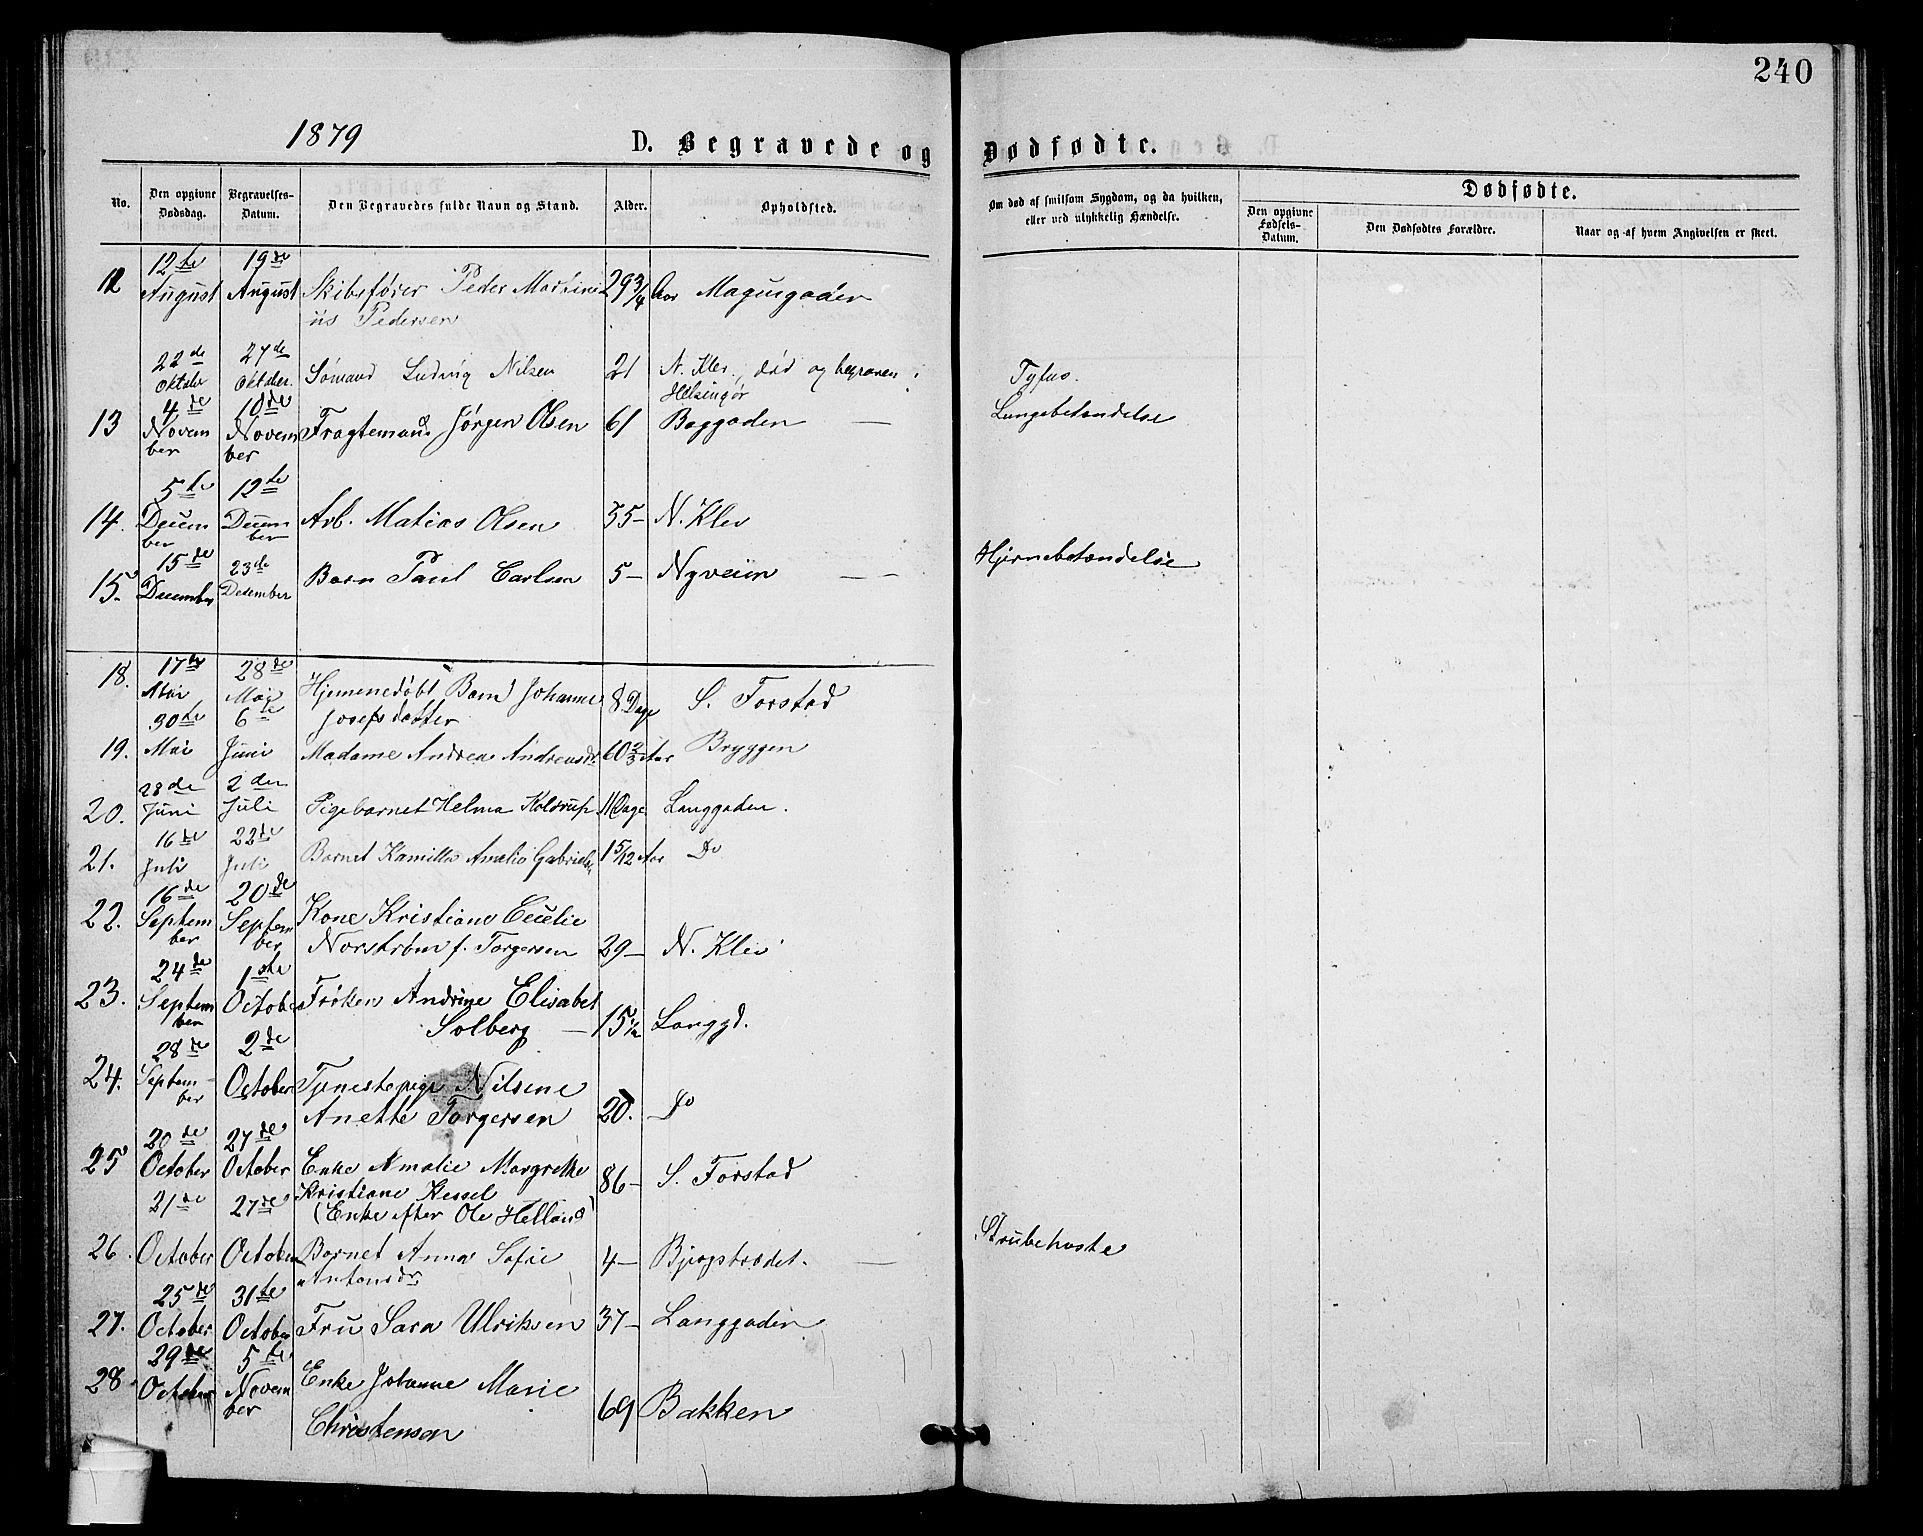 240
1879
D. Begravede og Dødfødte.
No.
Den opgivne Dødsdag.
Begravelses-Datum.
Den Begravedes fulde Navn og Stand.
Alder.
Opholdsted.
Om død af smitsom Sygdom, og da hvilken, eller ved ulykkelig Hændelse.
Dødfødte.
Den opgivne Fødsels-Datum.
Den Dødfødtes Forældre.
Naar og af hvem Angivelsen er skeet.
12te 19de
12 August August Skibsfører Peder Martini 29 3/4 Aar
us Pedersen
22de 27de
Oktober Oktober Sømand Ludvig Nilsen 21 N. Klev, død og begraven i Tyfus.
Helsingør
4de 10de
13 Novem Novem Fragtemand Jørgen Olsen 61 Baggaden — Lungebetændelse
ber ber
5te 12te
14. Decem Decem Arb. Matias Olsen 35 — N. Klev
ber ber
15de 23de
15. December Desember Barn Paul Carlsen 5 — Nyveien — Hjernebetændelse
17de 28de
18. Mai Mai Hjemmedøbt Barn Johanne 8 Dage S. Forstad
Josefsdatter
30te 6te
19. Mai Juni Madame Andrea Andreasdr. 60 2/3 Aar Bryggen
28de 2den
20. Juni Juli Pigebarnet Helma Koldrup 11 Dage Langgaden.
16de 22de
21. Juli Juli Barnet Kamilla Amalie Gabriels 1 5/12 Aar Do
16de 20de
22. Septem Septem Kone Kristiane Cecilie
ber ber Norstrøm f. Torgersen 29 — N. Klev
24de 1ste
23. Septem October Frøken Andrine Elisabet
ber Solberg — 15 1/2 Langgd.
28de 2de
24. Septem- October Tjenestepige Nilsine
ber Anette Torgersen 20. Do
20de 27de
25 October October Enke Amalie Margrethe 86 — S. Forstad
Kristiane Kessel
(Enke efter Ole Helland)
21de 27de
26. October October Barnet Anna Sofie 4 — — Strubehoste
Antonsdr
25de 31te
27. October October Fru Sara Ulriksen 37 — Langgaden
29de 5te
28. October Novem Enke Johanne Marie 69 Bakken
ber
Christensen